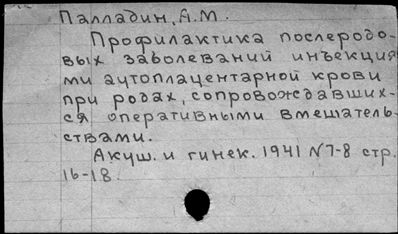 Палладин, А.М.
Профилактика послеродо-
вых заболеваний инъекция
ми аутоплацентарной крови
при родах, сопровождавших-
ся оперативными вмешатель-
ствами.
Акуш. и гинек. 1941 №7-8 стр.
16-18.